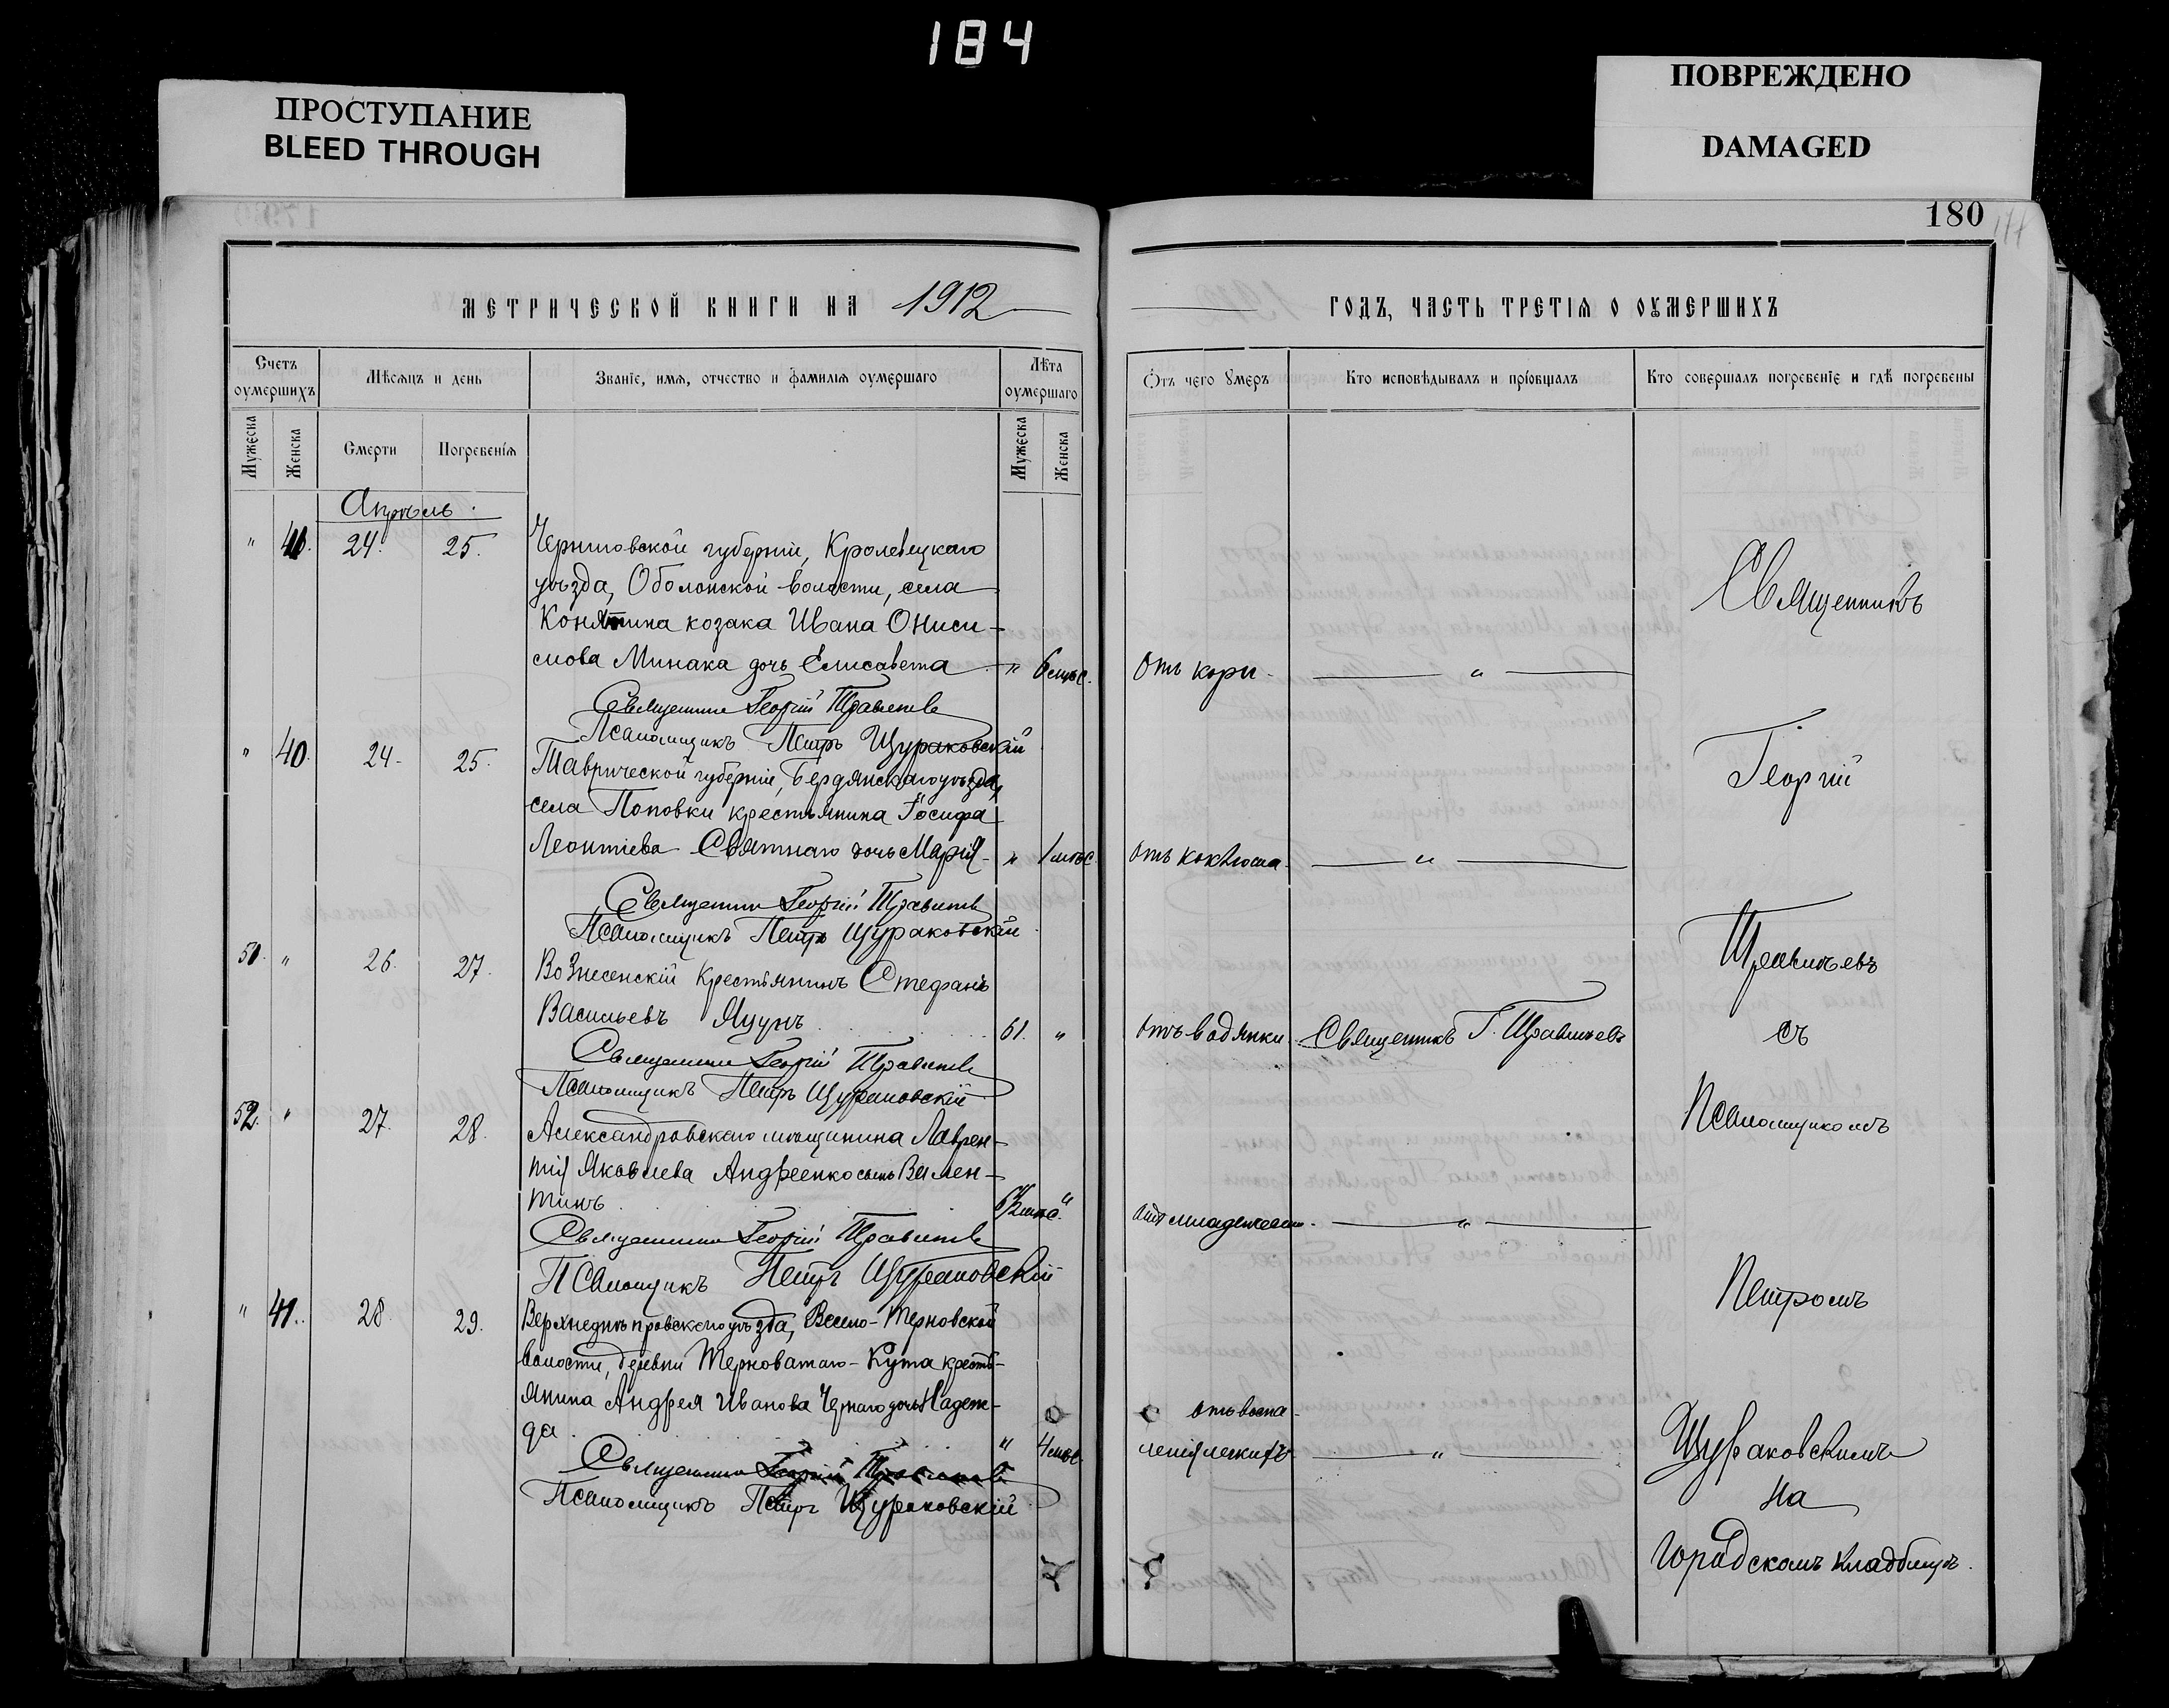 184
ПРОСТУПАНИЕ
BLEED THROUGH
ПОВРЕЖДЕНО
DAMAGED
180
МЕТРИЧЕСКОЙ КНИГИ НА 1912
ГОДЪ, ЧАСТЬ ТРЕТІЯ О ОУМЕРШИХЪ
Счетъ оумершихъ
Мѣсяцъ и день
Званіе, имя, отчество и фамилія оумершаго
Лѣта оумершаго
Отъ чего умеръ
Кто исповѣдывалъ и пріобщалъ
Кто совершалъ погребеніе и гдѣ погребены
Мужеска
Женска
Смерти
Погребенія
Мужеска
Женска
Апрѣль.
" 24. 25. Черниговской губерніи, Кролевецкаго
уѣзда, Оболонской волости, села
Конятина козака Ивана Ониси-
мова Минака дочь Елисавета " 6 мѣс. Отъ кори. "
Священникъ Георгій Правильевъ
Псаломщикъ Петръ Щураковскій
" 40. 24. 25. Таврической губерніи, Бердянскаго уѣзда,
села Поповки крестьянина Іосифа
Леонтіева Святнаго дочь Марія " 1 мѣс. Отъ коклюша. "
Священникъ Георгій Правильевъ
Псаломщикъ Петръ Щураковскій
51. " 26. 27. Вознесенскій крестьянинъ Стефанъ
Васильевъ Яцунъ 61. " Отъ водянки Священникъ Г. Правильевъ
Священникъ Георгій Правильевъ
Псаломщикъ Петръ Щураковскій
52. " 27. 28. Александровскаго мѣщанина Лаврен-
тія Яковлева Андреенко сынъ Вален-
тинъ " "
Священникъ Георгій Правильевъ
Псаломщикъ Петръ Щураковскій
" 41. 28. 29. Верхнеднѣпровскаго уѣзда, Весело-Терновской
волости, деревни Терноватаго-Кута кресть-
янина Андрея Иванова Чернаго дочь Надеж- Отъ воспа-
да " 4 мѣс. ленія легкихъ "
Священникъ Георгій Правильевъ
Псаломщикъ Петръ Щураковскій
Священникъ
Георгій
Правильевъ
съ
Псаломщикомъ
Петромъ
Щураковскимъ
на
городскомъ кладбищѣ.